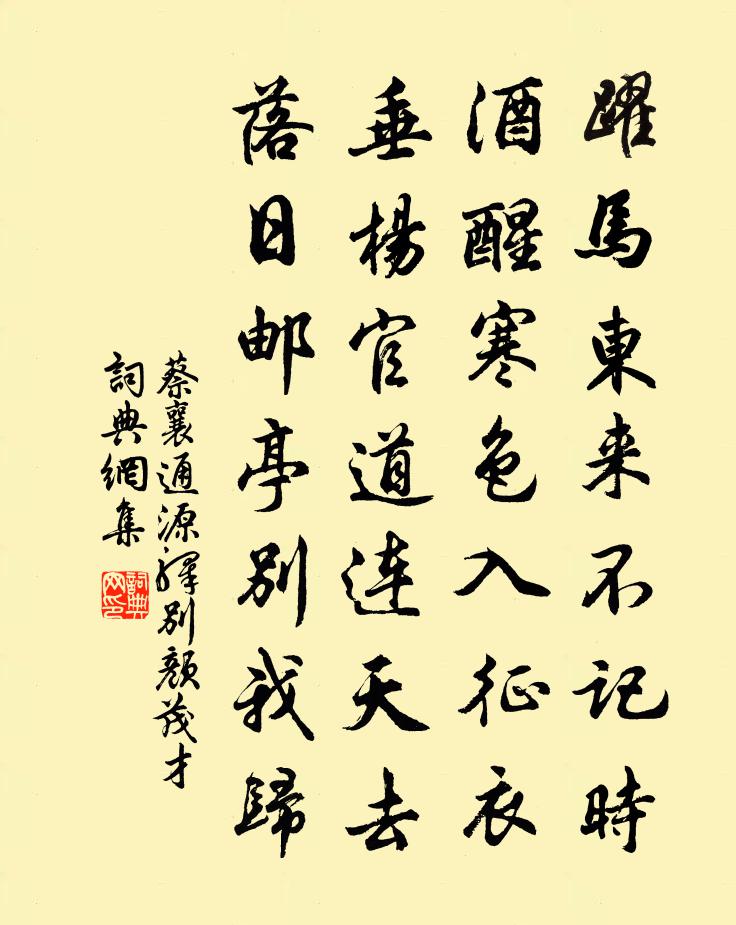 躍馬東来不记時
酒醒寒色入征衣
垂楊官道連天去
落日邮亭别我歸
蔡襄通源驛别顏茂才
詞典網集
詞典網印